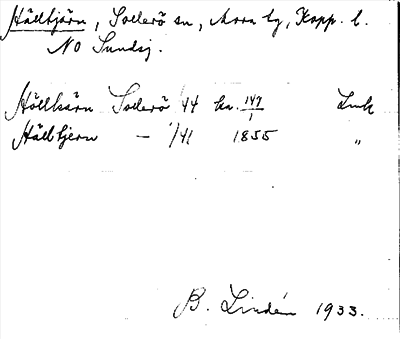 Hälltjärn, Sollerö sn, Mora tg, Kopp. l.
NO Sundsj.
Hällkärn Sollerö 1/44 kn. 147/1 Lmk
Hälltjern — 1/41 1855 "
B. Lindén 1933.